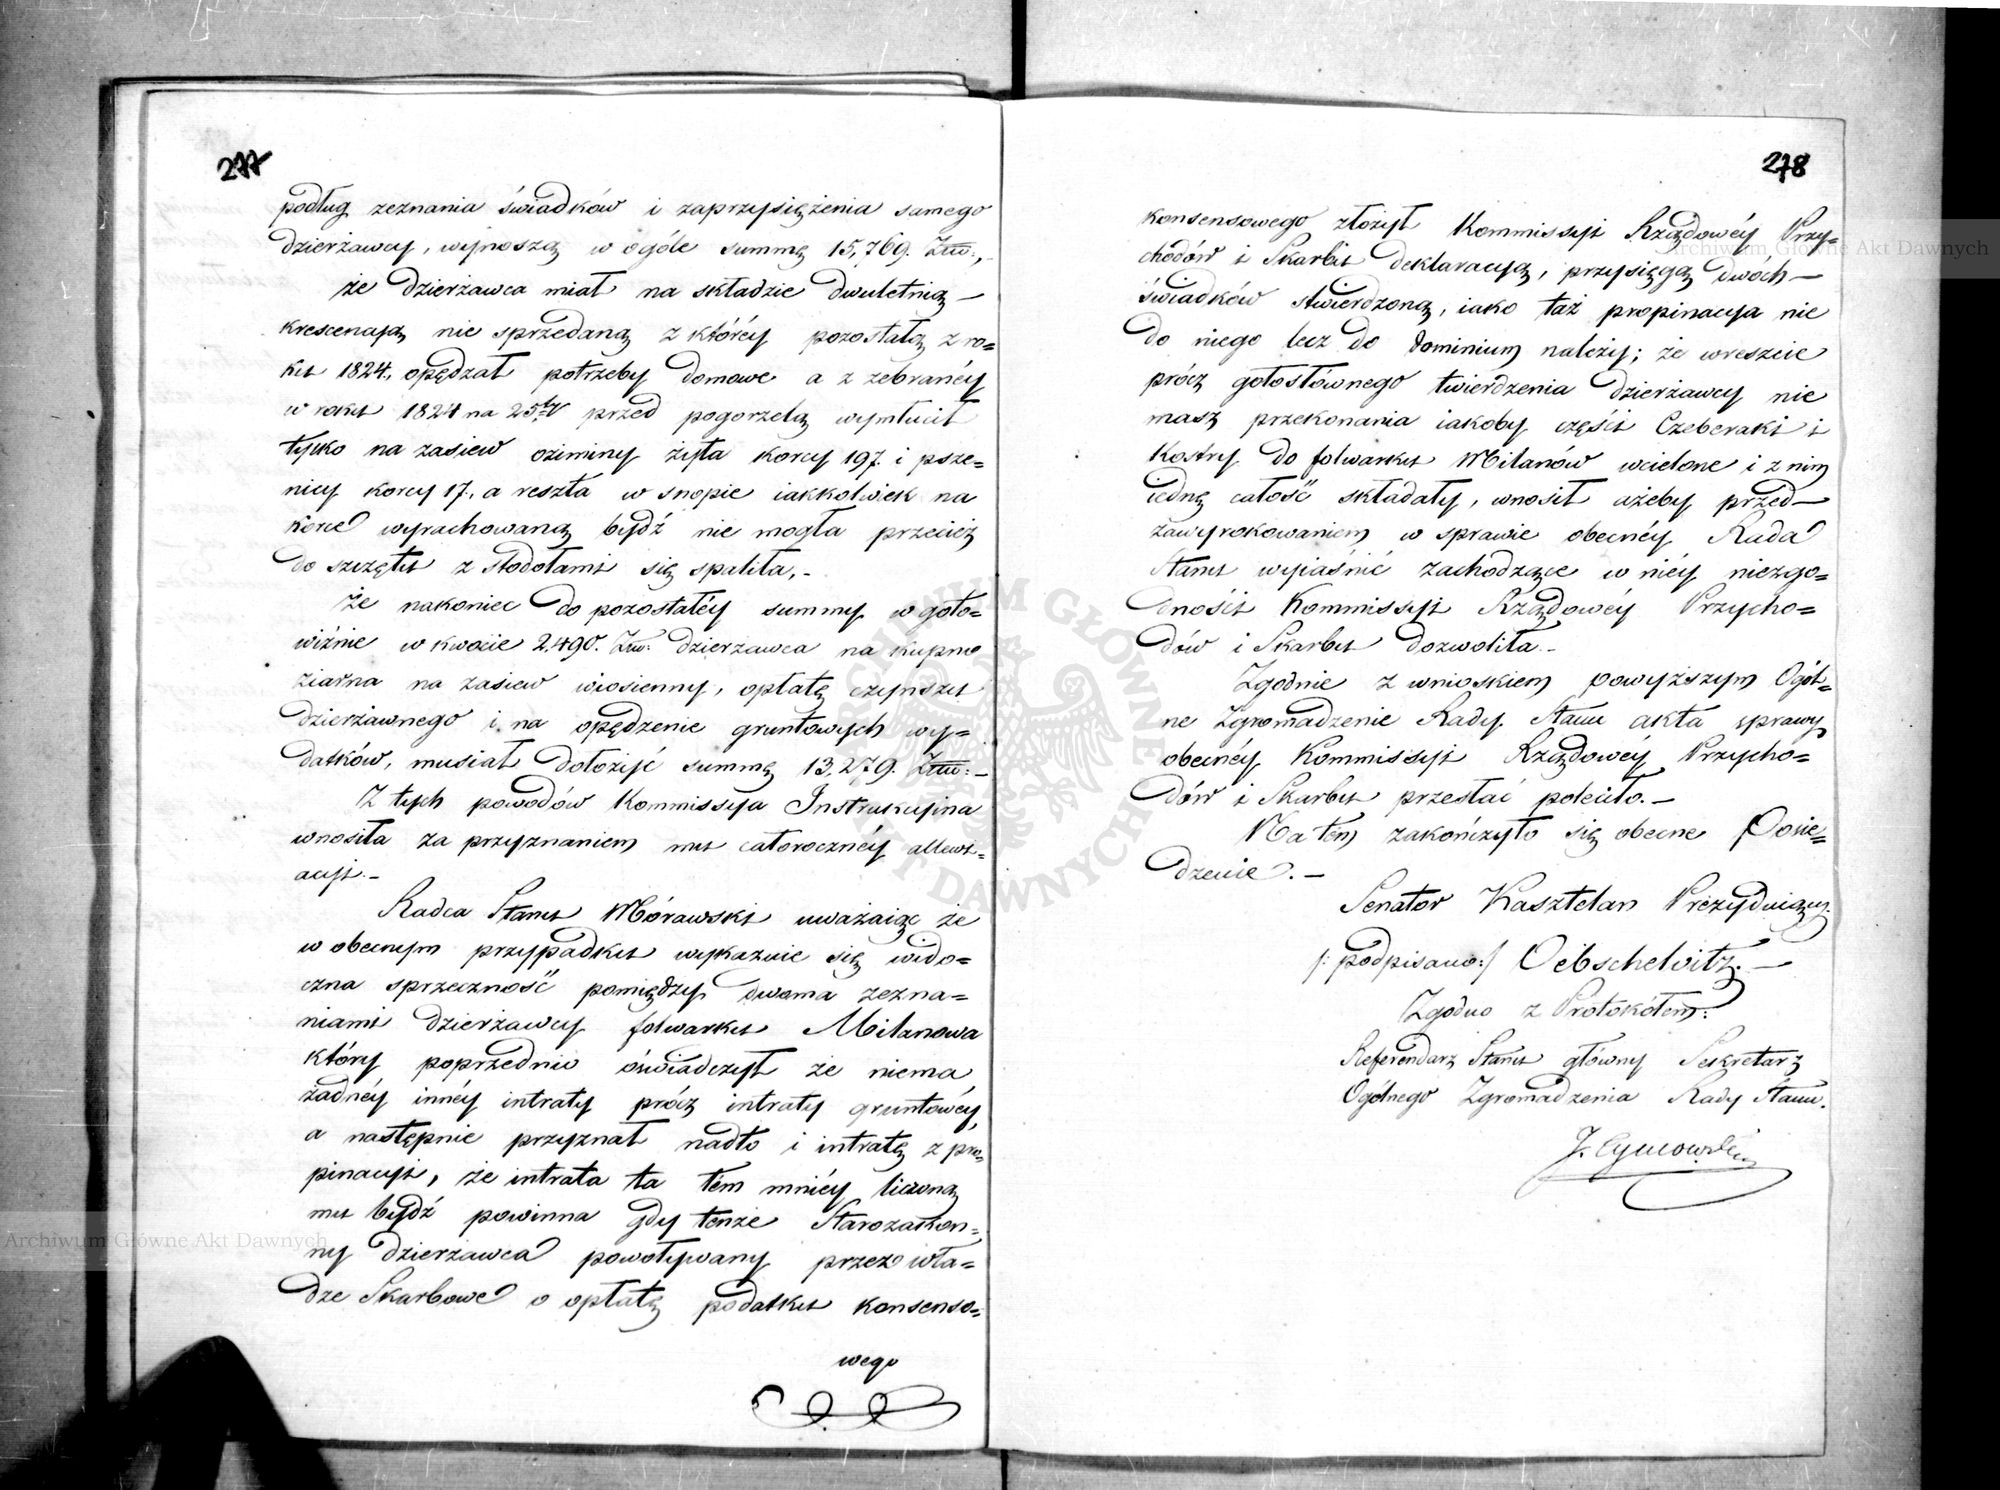 277
podług zeznania świadków i zaprzysiężenia samego
dzierżawcy, wynoszą w ogóle summę 15,769. Złtt:,
że dzierżawca miał na składzie dwuletnią –
krescencyą nie sprzedaną z któréy pozostałą z ro=
ku 1824. opędzał potrzeby domowe a z zebranéy
w roku 1824 na 25ty przed pogorzelą wymłócił
tylko na zasiew oziminy żyta korcy 197. i psze=
nicy korcy 17., a reszta w snopie iakkolwiek na
korce wyrachowaną bydź nie mogła przecież
do szczętu z stodołami się spaliła. –
Że nakoniec do pozostałéy summy w goto=
wiźnie w kwocie 2,490. Złtt: dzierżawca na kupno
ziarna na zasiew wiosienny, opłatę czynszu
dzierżawnego i na opędzenie gruntowych wy=
datków, musiał dołożyć summę 13,279. Złtt: –
Z tych powodów Kommissya Instrukcyina
wnosiła za przyznaniem mu całorocznéy allewi=
acyi. –
Radca Stanu Mórawski uważaiąc że
w obecnym przypadku wykazuie się wido=
czna sprzeczność pomiędzy dwoma zezna=
niami dzierżawcy folwarku Milanowa
który poprzednio oświadczył że niema
żadnéy innéy intraty prócz intraty gruntowéy,
a następnie przyznał nadto i intratę z pro=
pinacyi, że intrata ta tém mniéy liczoną
mu bydź powinna gdy tenże Starozakon=
ny dzierżawca powoływany przez wła=
dze Skarbowe o opłatę podatku konsenso=
wego
278
konsensowego złożył Kommissyi Rządowéy Przy=
chodów i Skarbu deklaracyą, przysięgą dwóch –
świadków stwierdzoną, iako taż propinacya nie
do niego lecz do dominium należy; że wreszcie
prócz gołosłównego twierdzenia dzierżawcy nie
masz przekonania iakoby części Czeberaki i
Kostry do folwarku Milanów wcielone i z nim
iednę całość składały, wnosił ażeby przed –
zawyrokowaniem w sprawie obecnéy Rada
Stanu wyiaśnić zachodzące w niéy niezgo=
dności Kommissyi Rządowéy Przycho=
dów i Skarbu dozwoliła. –
Zgodnie z wnioskiem powyższym Ogól=
ne Zgromadzenie Rady Stanu akta sprawy
obecnéy Kommissyi Rządowéy Przycho=
dów i Skarbu przesłać poleciło. –
Na tém zakończyło się obecne Posie=
dzenie. –
Senator Kasztelan Prezyduiący.
/: podpisano:/ Oebschelwitz. –
Zgodno z Protokółem:
Referendarz Stanu główny Sekretarz
Ogólnego Zgromadzenia Rady Stanu.
Archiwum Główne Akt Dawnych
Archiwum Główne Akt Dawnych
ARCHIWUM GŁÓWNE AKT DAWNYCH